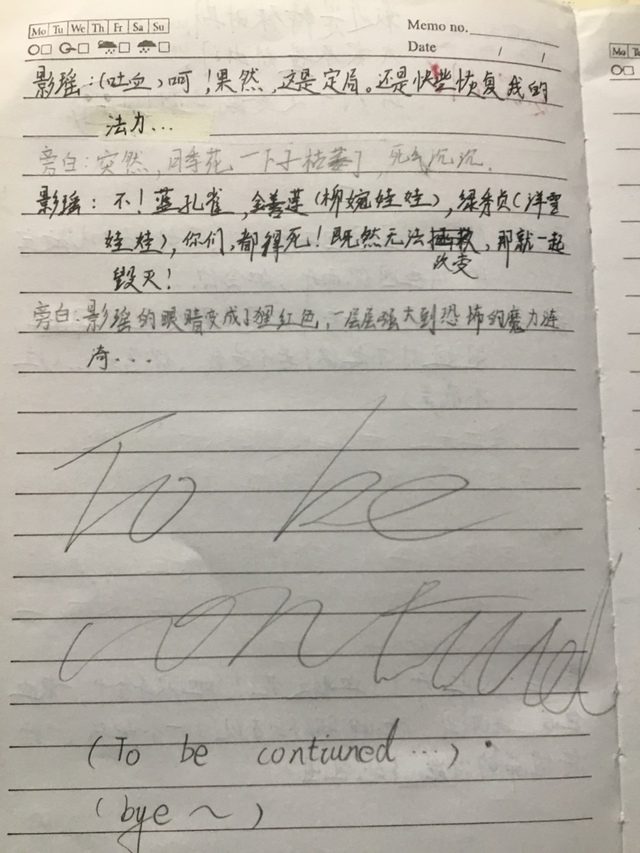 Mo Tu We Th Fr Sa Su
Memo no.
Date / /
影瑶：（吐血）呵！果然，这是定局。还是快些恢复我的
法力...
旁白：突然，四季花一下子枯萎了，死气沉沉.
影瑶：不！蓝孔雀，金善莲（柳婉娃娃），绿秀贞（洋雪
娃娃），你们，都得死！既然无法拯救，那就一起
改变
毁灭！
旁白：影瑶的眼睛变成了猩红色，一层层强大到恐怖的魔力涟
漪...
To be
contiued
(To be contiuned ...).
(bye ～)